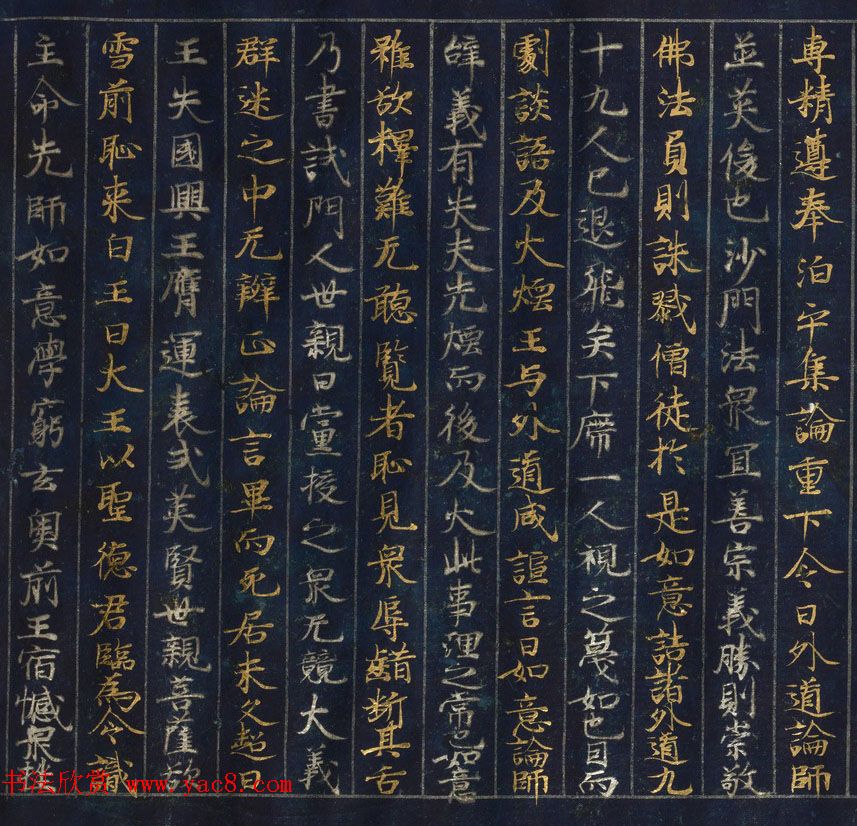 専精遵奉泊乎集論重下令曰外道論師
並英俊也沙門法衆冝善宗義勝則崇敬
佛法負則誅戮僧徒於是如意詰諸外道九
十九人已退飛矣下席一人視之蔑如也因而
劇談語及火煙王与外道咸諠言曰如意論師
辞義有失夫先煙而後及火此事理之常也如意
雖欲釋難无聽覧者恥見衆辱齰断其舌
乃書試門人世親曰黨援之衆无競大義
群迷之中无辯正論言畢而死居未久超日
王失國興王膺運表式英賢世親菩薩欲
雪前恥来白王曰大王以聖德君臨為含識
主命先師如意學窮玄奥前王宿憾衆挫
书法欣赏 www.yac8.com